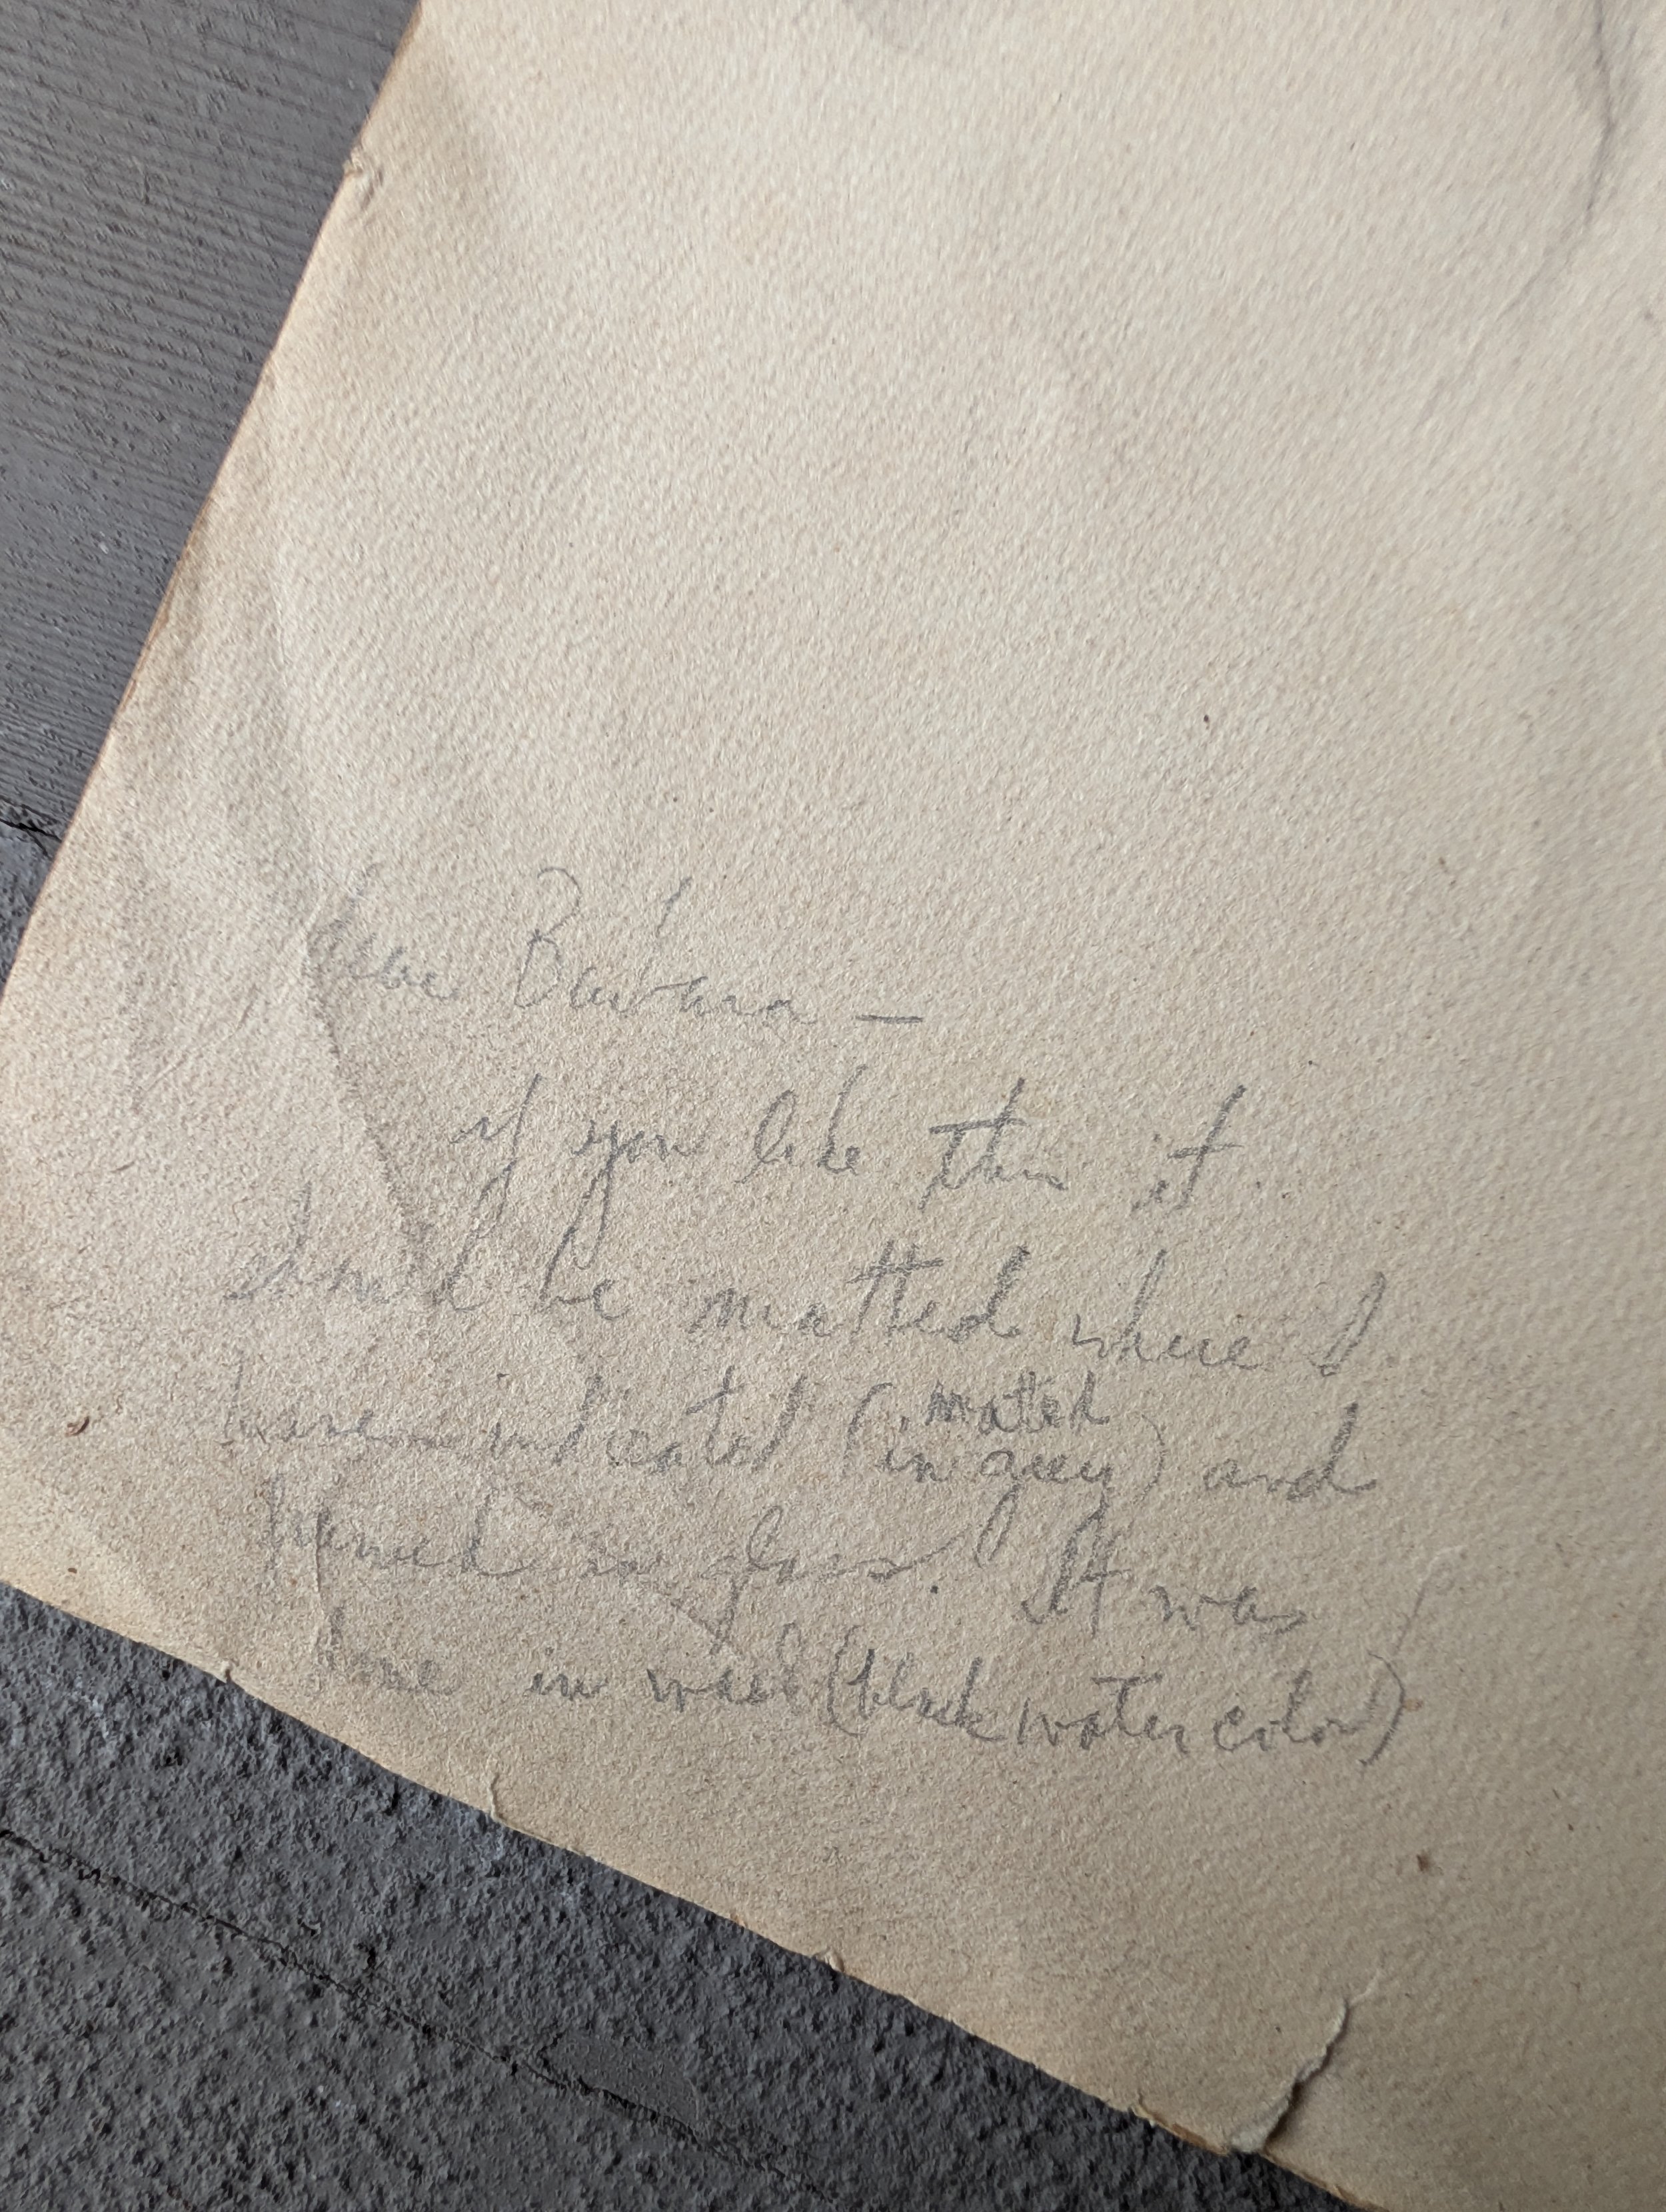 Dear Barbara —
if you like this it
should be matted where I
have indicated (matted in grey) and
framed in glass. It was
done in wash (black water color)